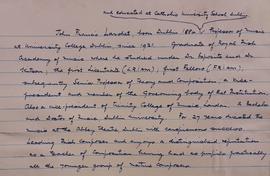 and educated at Catholic University School Dublin
John Francis Larchet born Dublin 1884. Professor of music
at University College Dublin since 1921. Graduate of Royal Irish
Academy of Music where he studied under Dr Esposito and Dr
the first Licentiate (L.R.I.A.M.), first Fellow (F.R.I.A.M.)
subsequently Senior Professor of Harmony and Composition a Vice-
president and member of the Governing body of that Institution.
Also a vice-president of Trinity College of Music London. A Bachelor
and Doctor of Music Dublin University. For 27 years directed the
music at the Abbey Theatre Dublin with conspicuous success
Leading Irish Composer and enjoys a distinguished reputation
as a Teacher of Composition having had as pupils practically
all the younger group of native composers.